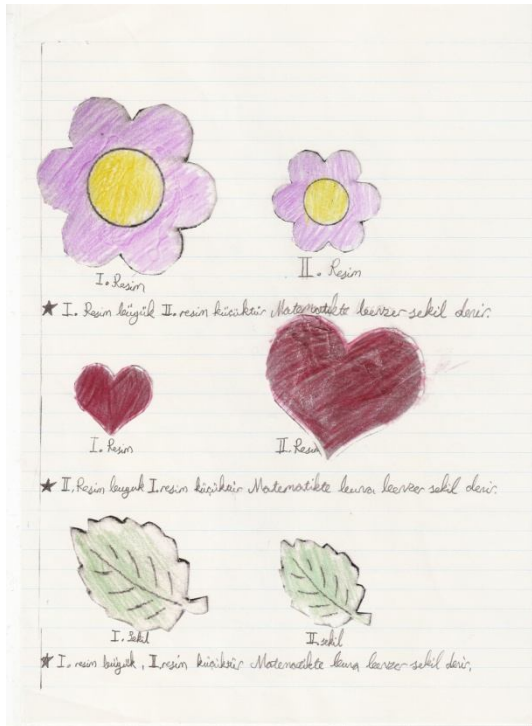 I. Resim
II. Resim
★ I. Resim büyük II. resim küçüktür Matematikte benzer şekil denir.
I. Resim
II. Resim
★ II. Resim büyük I. resim küçüktür Matematikte buna benzer şekil denir.
I. Şekil
II. şekil
★ I. resim büyük, II. resim küçüktür Matematikte buna benzer şekil denir.